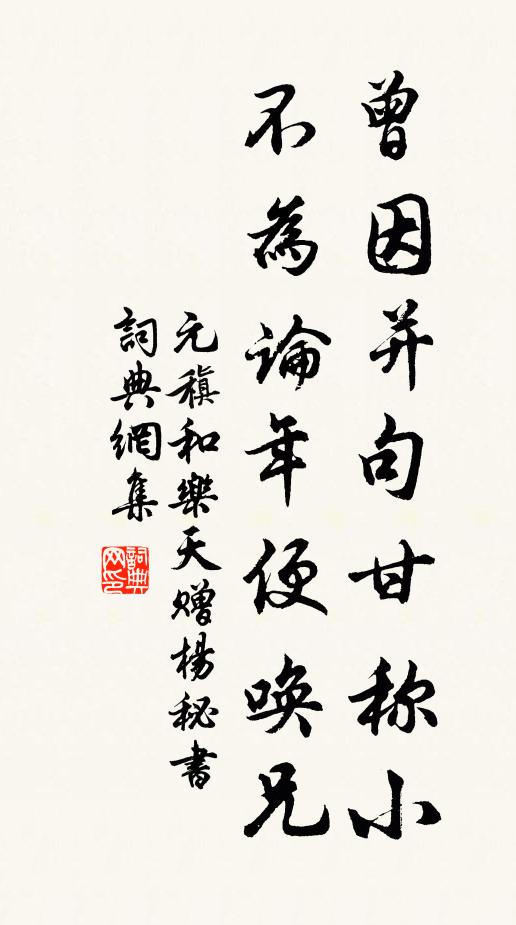 曾因并句甘称小
不為論年便喚兄
元稹和樂天贈楊秘書
詞典網集
詞典网印